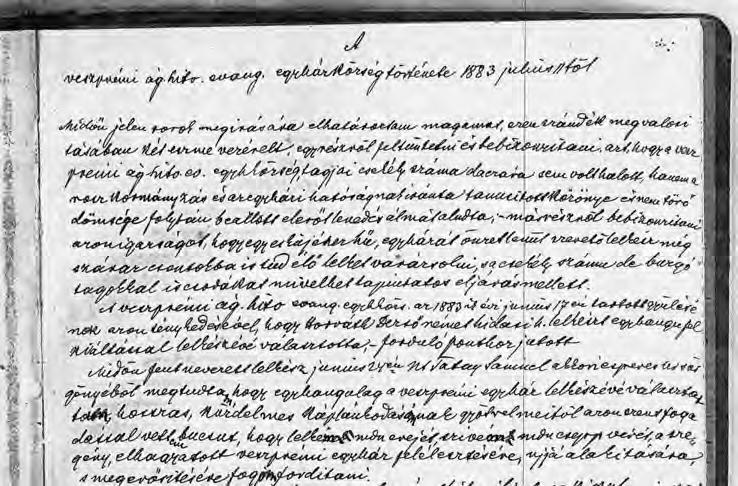 A
veszprémi ág. hitv. evang. egyházközség története 1883 julius 1től
Midőn jelen sorok megirására elhatároztam magamat, ezen szándék megvalósi
tásában két eszme vezérelt, egyrészről feltüntetni és bebizonyitani azt, hogy a vesz
prémi ág. hitv. ev. egyházközség tagjai csekély száma daczára sem volt halott, hanem a
rosz kormányzás és az egyházi hatóságnak iránta tanusitott közönye és nem törő
dömsége folytán beállott elerőtlenedés álmát aludta; – másrészről bebizonyitani
azon igazságot, hogy egy eskűjéhez hű, egyházát önzetlenül szerető lelkész még
száraz csontokba is tud élő lelket varázsolni, s a csekély számu de buzgó
tagokkal is csodákat mivelhet tapintatos eljárás mellett.
A veszprémi ág. hitv. evang. egyházközs. az 1883 ik évi junius 17 én tartott gyülésé
nek azon ténykedésével, hogy Horváth Dezső némethidasi h. lelkészt egyhangu fel
kiáltással lelkészévé választotta, – forduló ponthoz jutott
Midőn fent nevezett lelkész junius én Nt Tatay Sámuel akkori esperes
gönyéből megtudta, hogy egyhangulag a veszprémi egyház lelkészévé választa
tott, hosszas, küzdelmes káplánkodásának gyötrelmeitől azon erens foga
dással vett bucsut, hogy lelkem minden erejét, szivem minden csepp vérét, a sze
gény, elhagyatott veszprémi egyház felélesztésére, ujjá alakitására,
s megerősitésére fogom forditani.